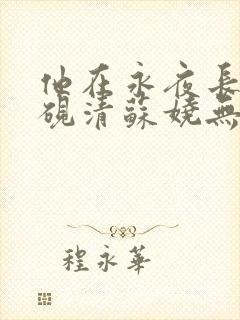 他在永夜長
硯清蘇嬈無
程永華